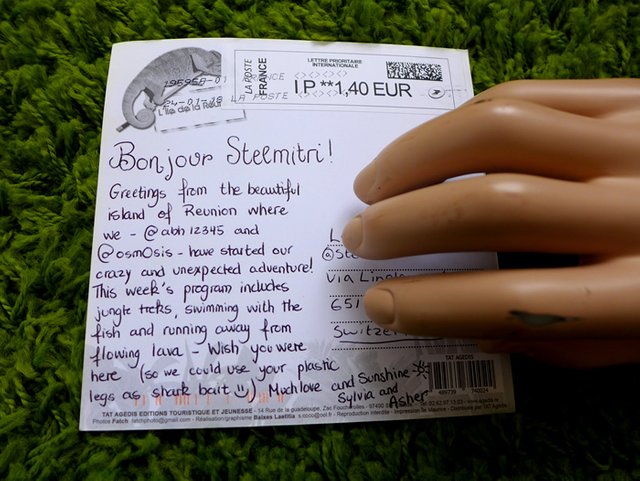 LETTRE PRIORITAIRE
INTERNATIONALE
LA POSTE
FRANCE
I.P **1,40 EUR
19595A-01
24-01-19 LA POSTE
L'île de la Réunion
Bonjour Steemitri!
Greetings from the beautiful
island of Reunion where
we - @abh12345 and
@osmOsis - have started our
crazy and unexpected adventure!
This week's program includes
jungle treks, swimming with the
fish and running away from
flowing lava - Wish you were
here (so we could use your plastic
legs as shark bait ) Much love and Sunshine
Sylvia and
Asher
L
@Ste
Via
651
Switzer
TAT AGEDIS
489739 740024
TAT AGEDIS EDITIONS TOURISTIQUE ET JEUNESSE - 14 Rue de la guadeloupe, Zac Foucherolles - 97490
Photos Fatch fatchphoto@gmail.com - Réalisation/graphisme Baixes Laetitia - Reproduction interdite - Impression Ile Maurice - Distribuée par TAT AGEDIS